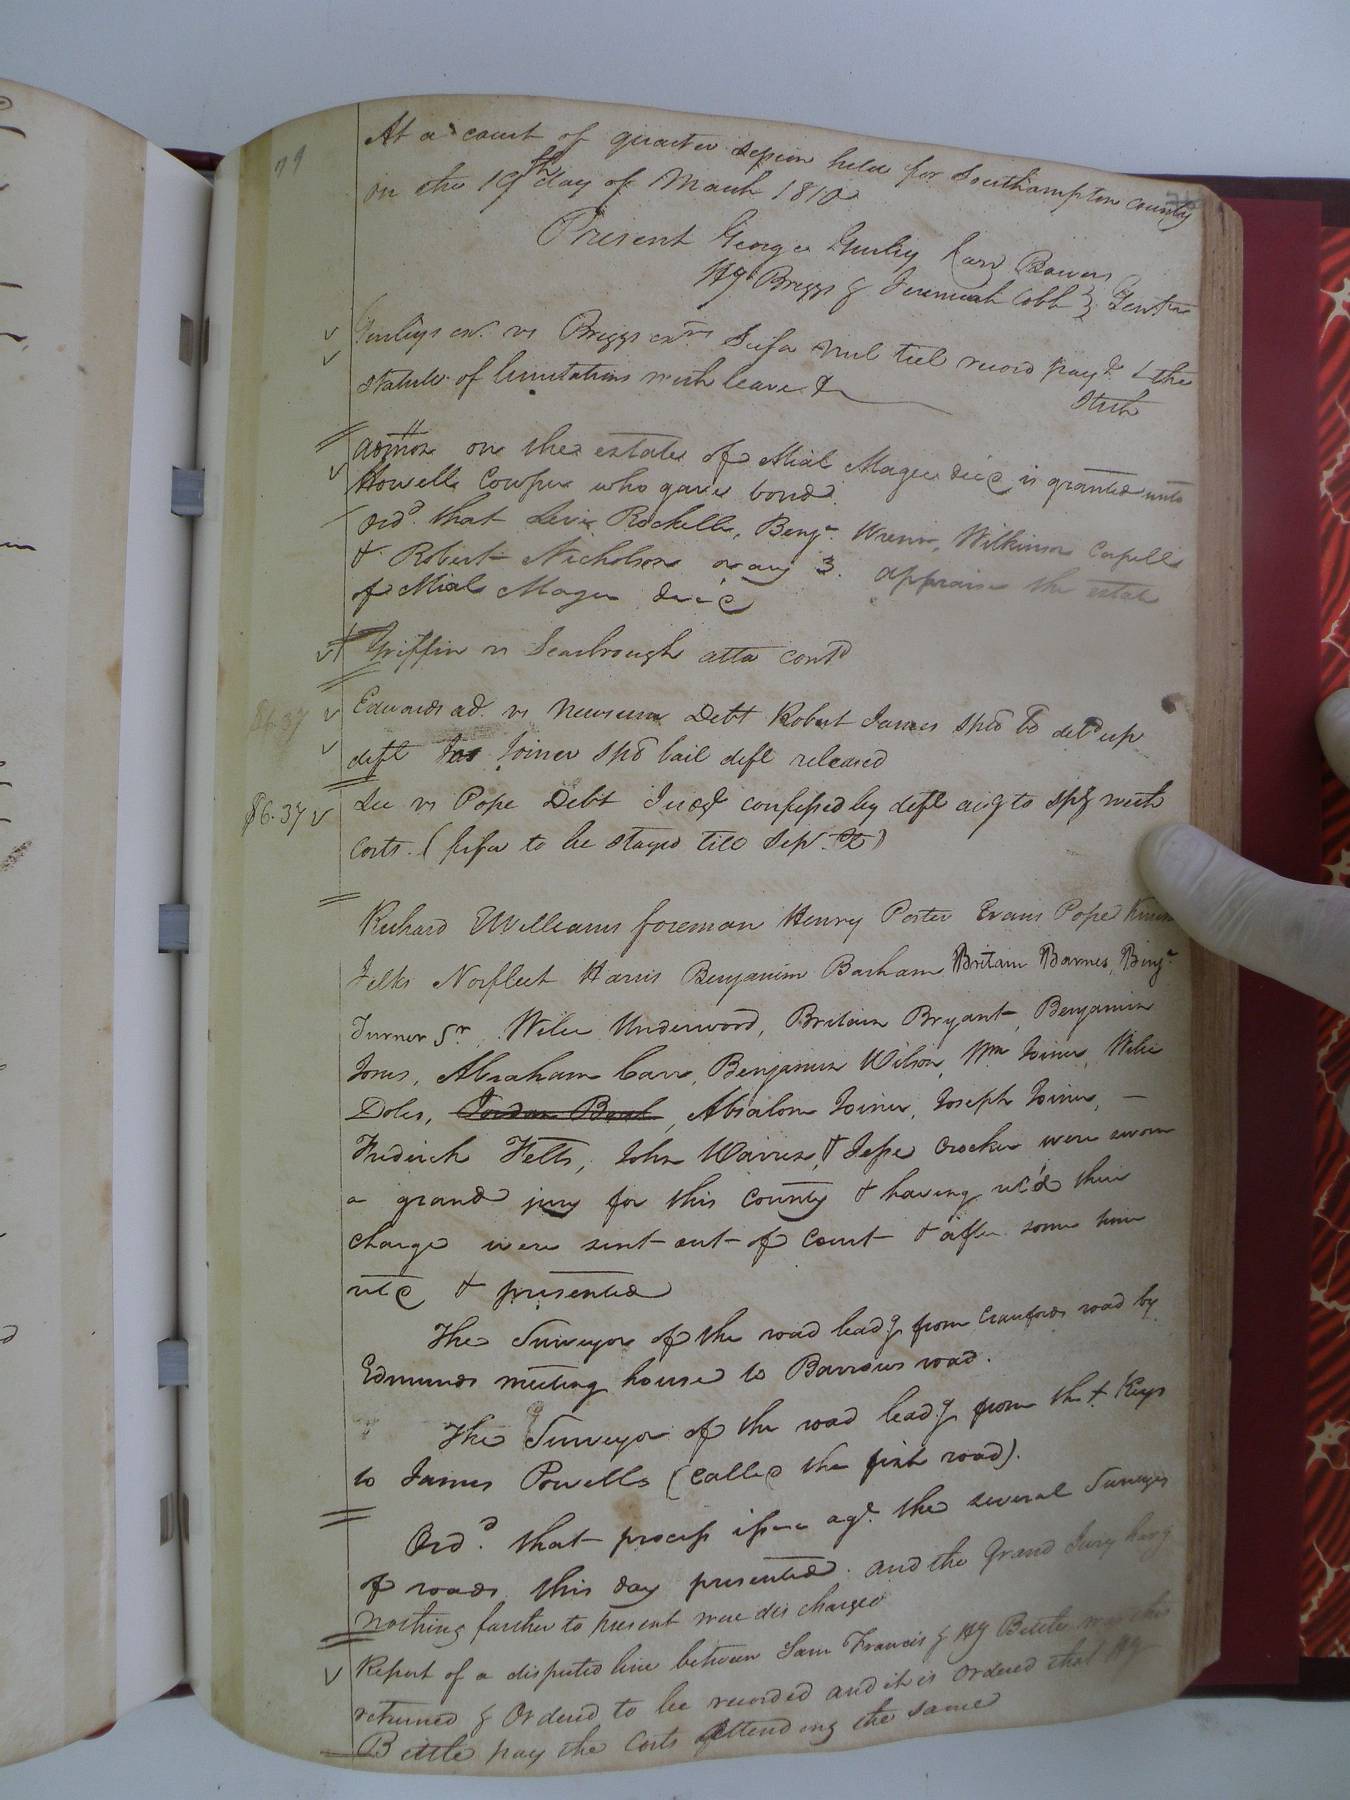 79
At a court of quarter session held for Southampton county
on the 19th day of March 1810
Present George Gurley Carr Bowers
Hy Briggs & Jeremiah Cobb } Gent
Gurleys exr. vs Briggs exrs Scifa nul tiel record paymt & the
statute of limitations with leave &
admon on the estate of Mial Magee decd is granted unto
Howell Cowper who gave bond
Ord. that Levi Rochelle, Benja. Wrenn, Wilkinson Capell
& Robert Nicholson or any 3. appraise the estate
of Mial Magee decd
Griffin vs Scarbrough atta contd
Edwards ad. vs Newsum Debt Robert James spd b deld up
deft Joiner spd bail deft released
$6.37
Lee vs Pope Debt Judgt confessed by deft accg to spy with
costs. (fifa to be stayed till Sep. Ct)
Richard Williams foreman Henry Porter Evans Pope
Felts Norfleet Harris Benjamin Barham Britain Barnes, Benja
Turner Sr, Wilie Underwood, Britain Bryant, Benjamin
Jones, Abraham Carr, Benjamin Wilson, Wm Joiner, Wilie
Doles, Absalom Joiner, Joseph Joiner, —
Frederick Felts, John Warren, & Jesse Crocker were sworn
a grand jury for this county & having recd their
charge were sent out of court & after some time
retd & presented
The Surveyor of the road leadg from Crawfords road by
Edmunds meeting house to Barrows road.
The Surveyor of the road leadg from the + Keys
to James Powells (called the fish road).
Ord. that process issue agt. the several Surveyors
of roads this day presented. and the Grand Jury havg
nothing farther to present were discharged
Report of a disputed line between Sam Francis & Hy Bittle was this
returned & Ordered to be recorded and it is ordered that Hy
Bittle pay the Costs attending the same